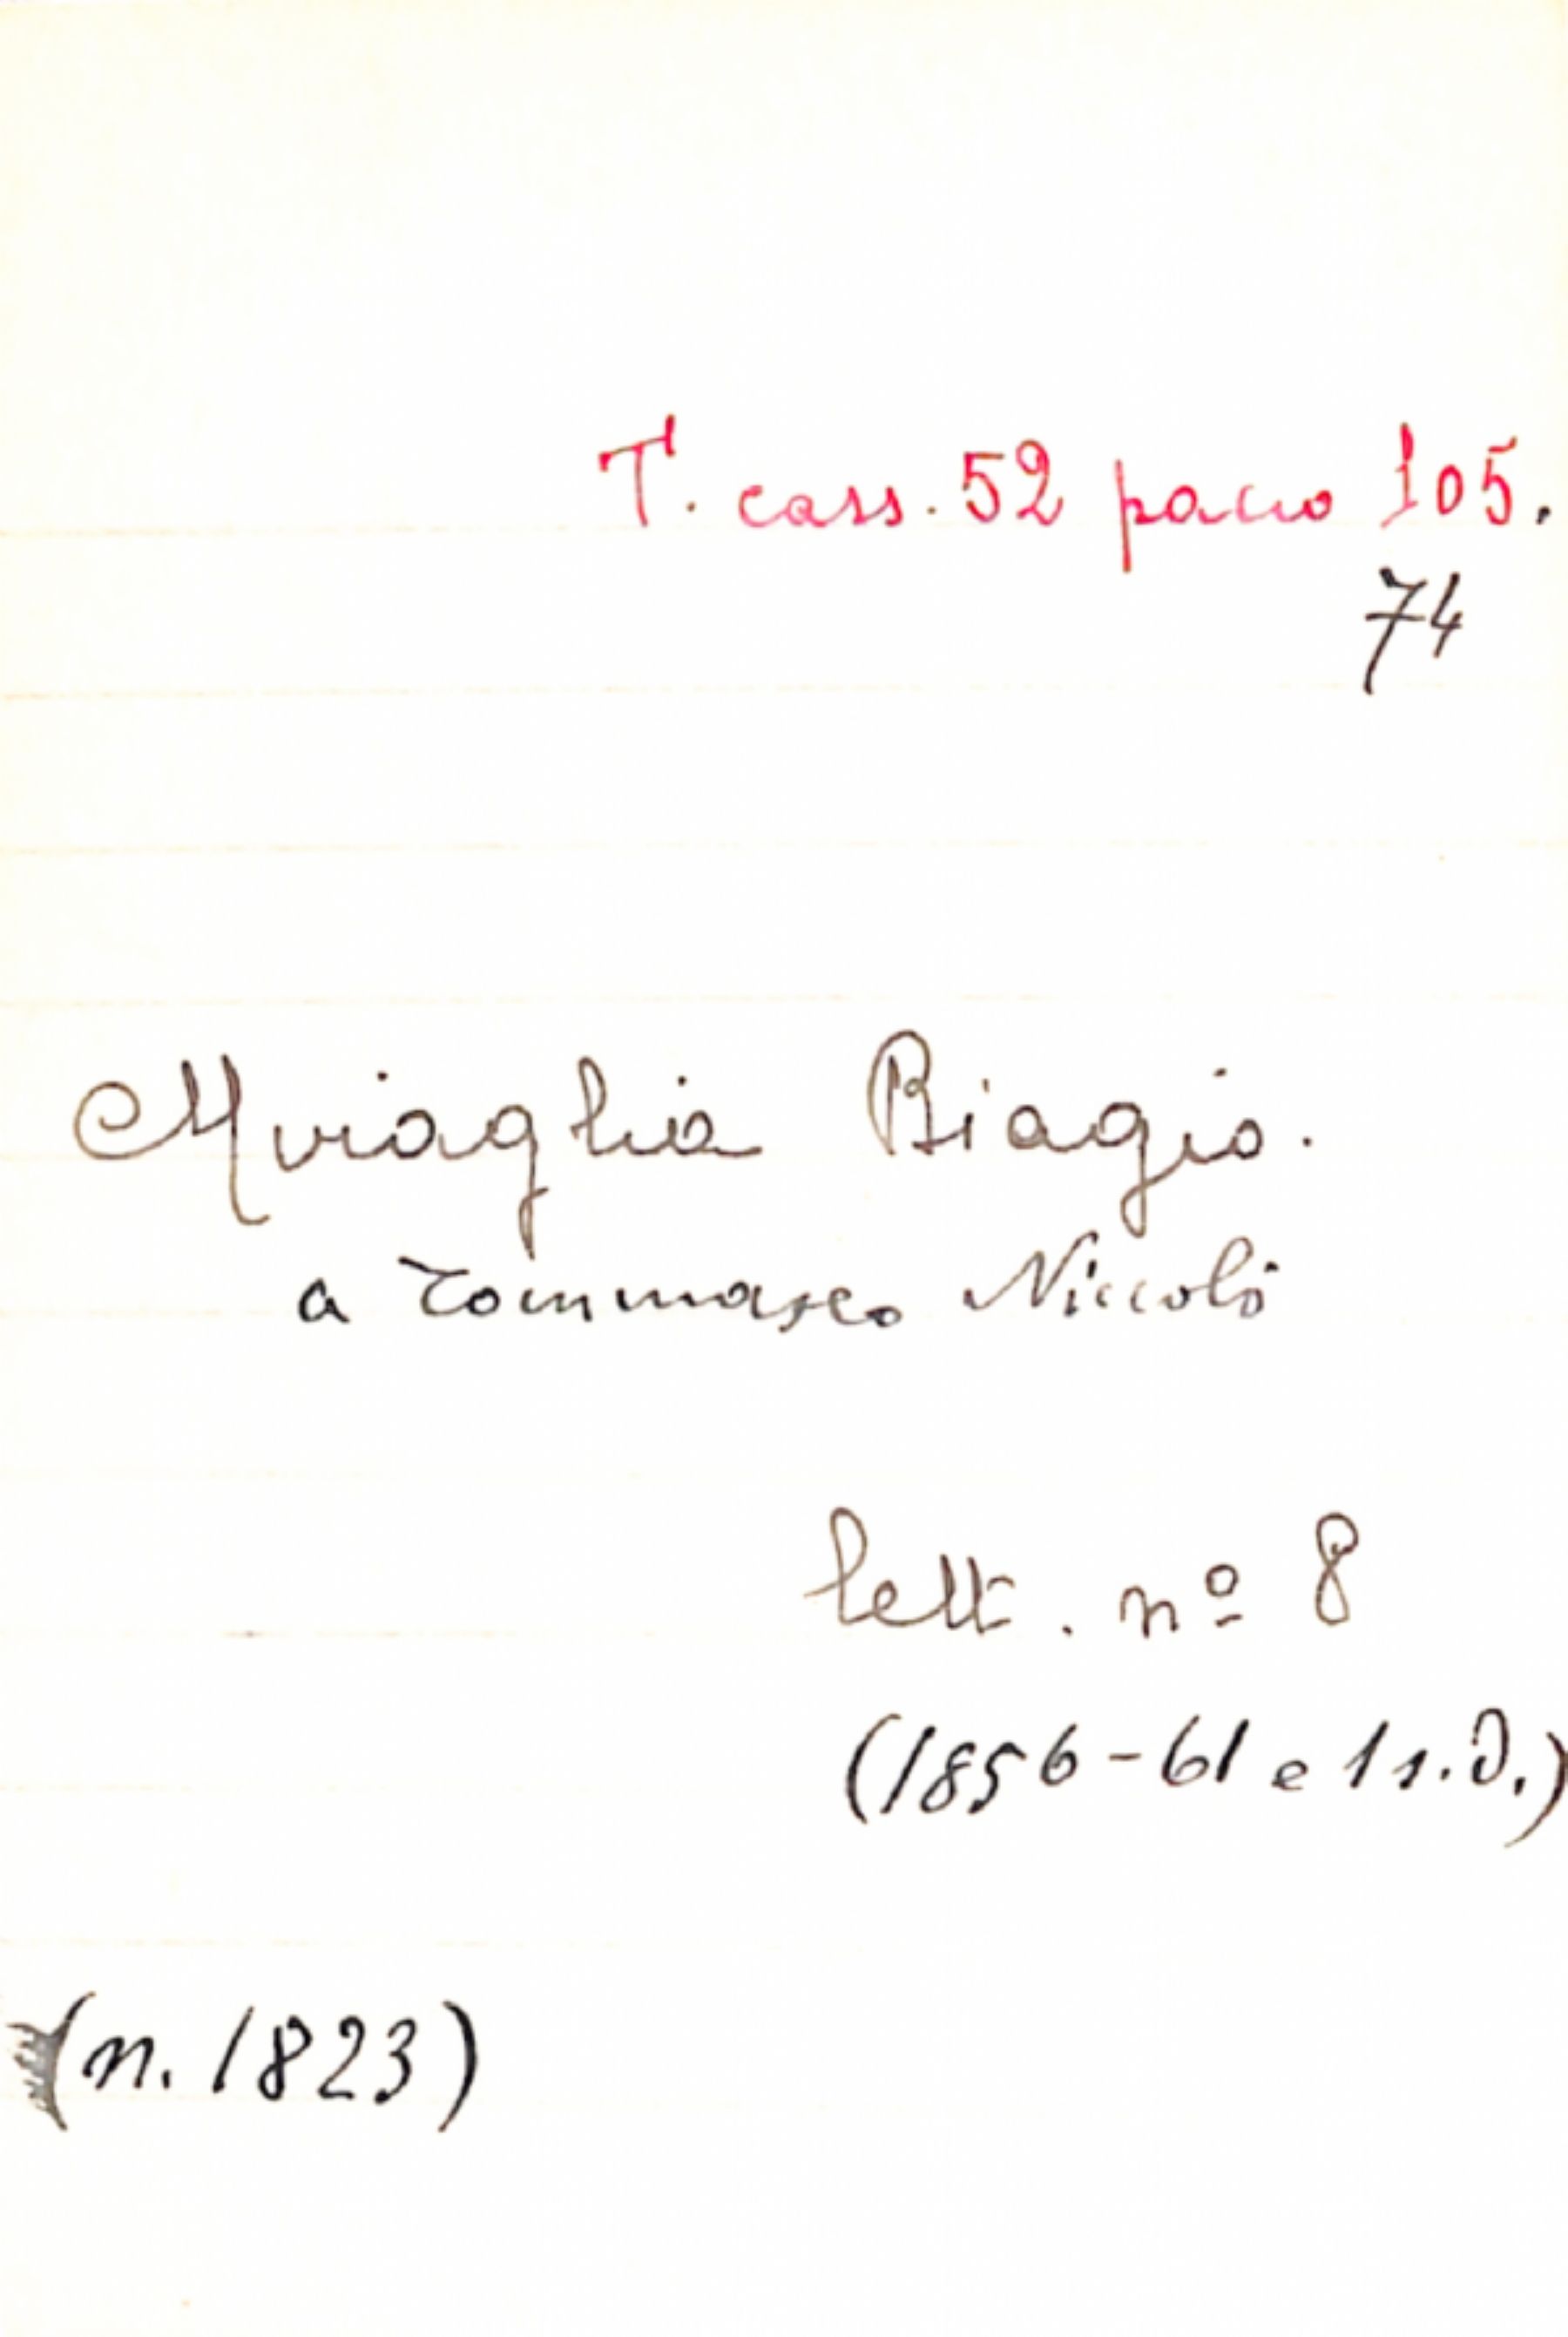 T. cass. 52 pacco 105.
74
Miraglia Biagio.
a Tommaseo Niccolò
lett. nº 8
(1856-61 e 1 s.d.)
(n. 1823)